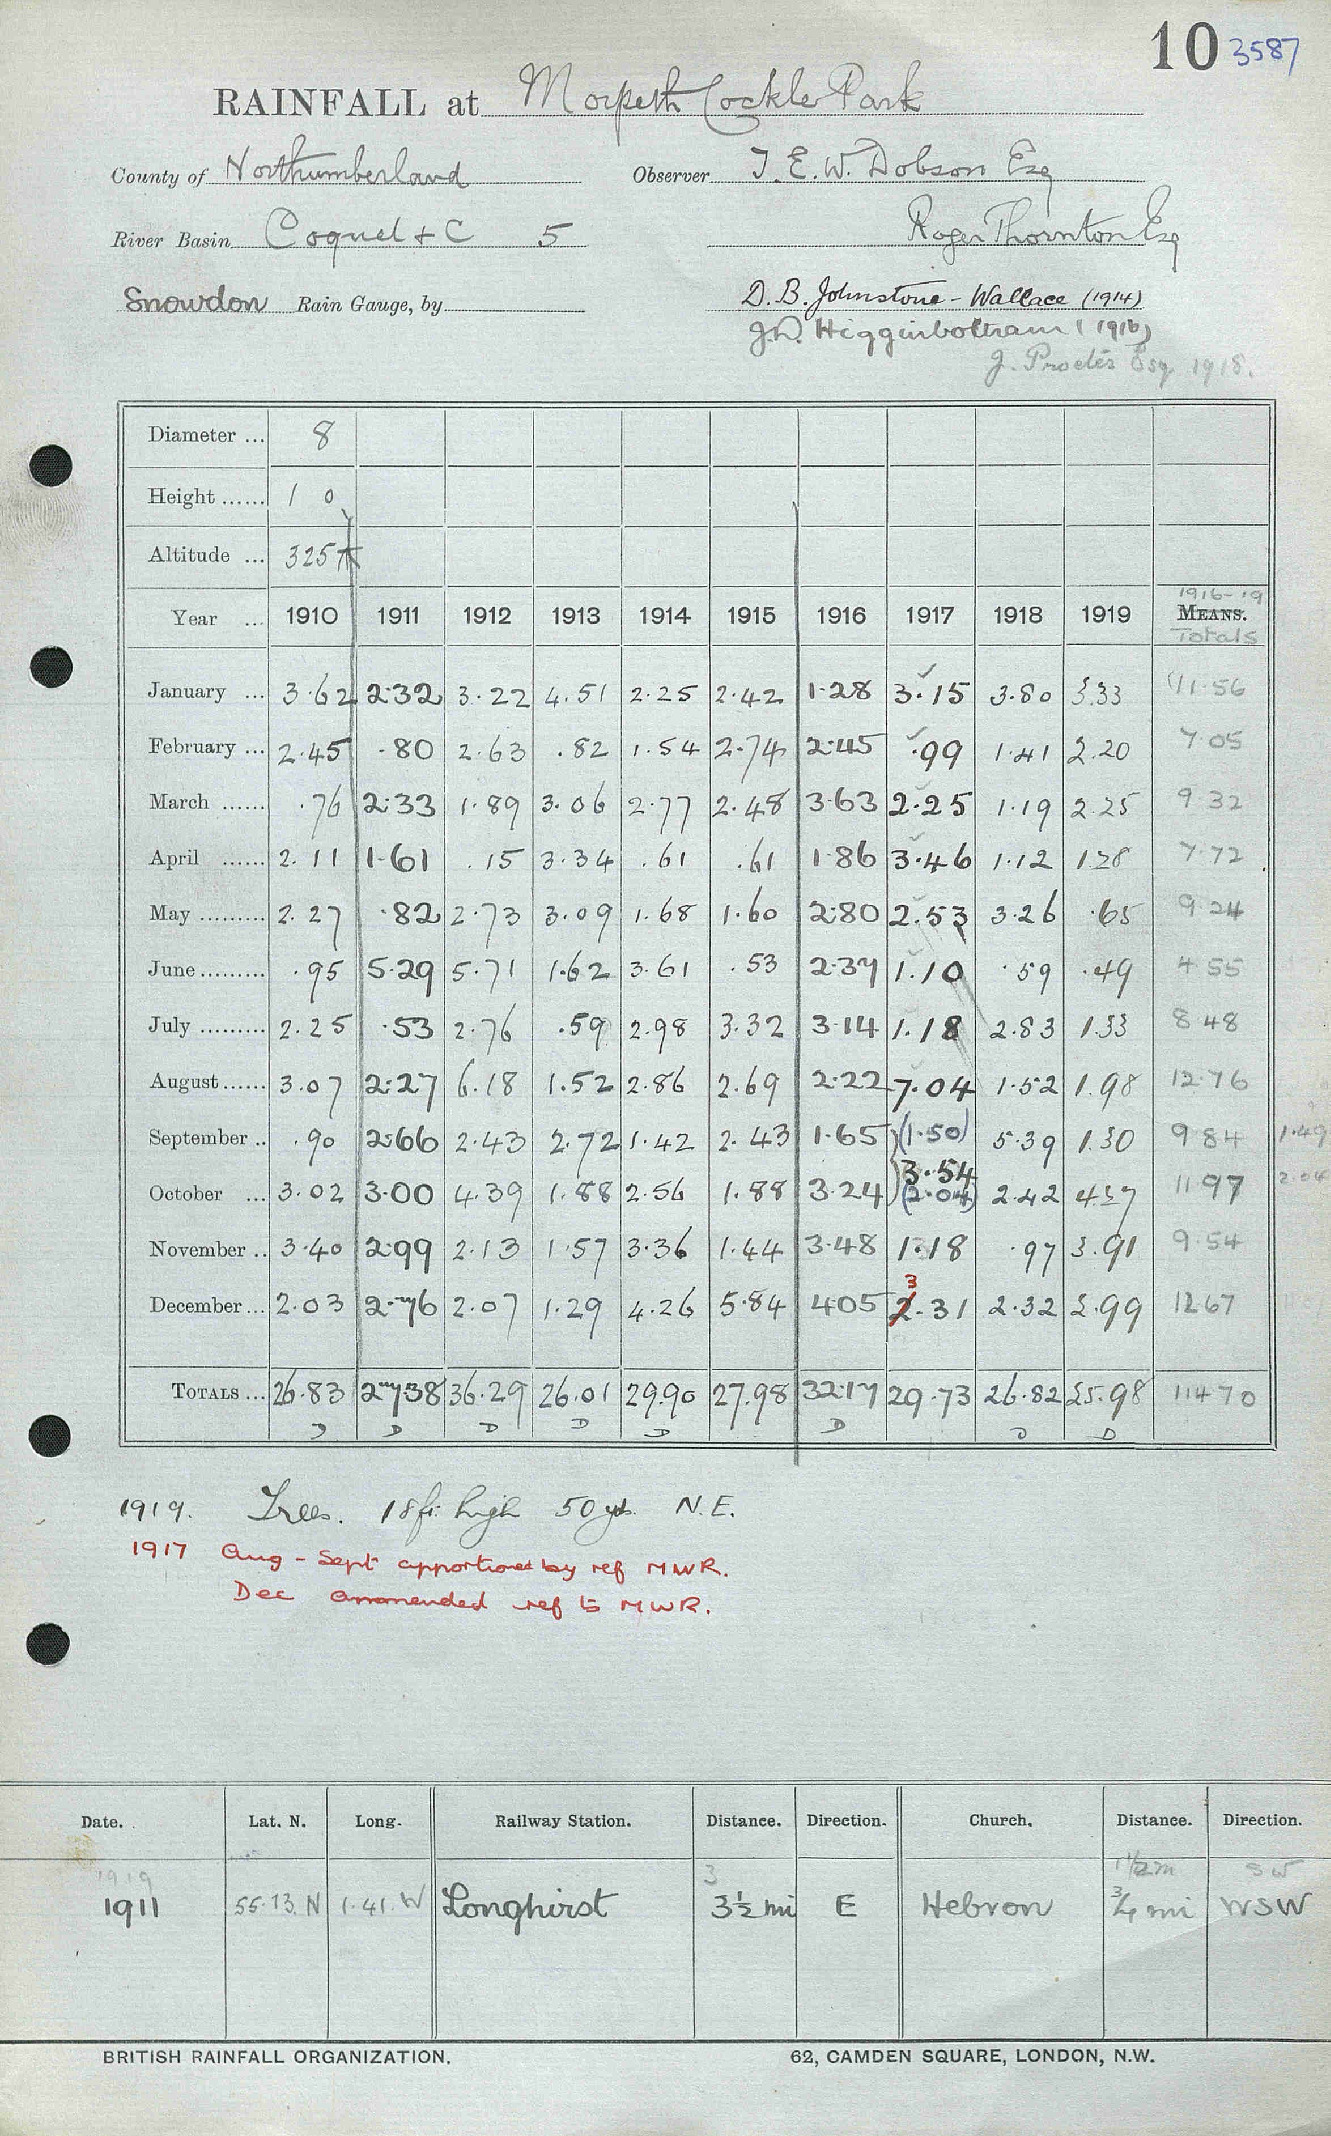 10 3587
RAINFALL at Morpeth Cockle Park
County of Northumberland Observer T. E. W. Dobson Esq
River Basin Coquet & C 5 Roger Thornton Esq
Snowdon Rain Gauge, by D. B. Johnstone-Wallace (1914)
J.D. Higginbottram (1916)
J. Procter Esq. 1918.
Diameter ... 8
Height ...... 1 0
Altitude ... 325 ft
1916-19
Year ... 1910 1911 1912 1913 1914 1915 1916 1917 1918 1919 MEANS.
Totals
January ... 3.62 2.32 3.22 4.51 2.25 2.42 1.28 3.15 3.80 3.33 11.56
February ... 2.45 .80 2.63 .82 1.54 2.74 2.45 .99 1.41 2.20 7.05
March ...... .76 2.33 1.89 3.06 2.77 2.48 3.63 2.25 1.19 2.25 9.32
April ...... 2.11 1.61 .15 3.34 .61 .61 1.86 3.46 1.12 1.28 7.72
May ......... 2.27 .82 2.73 3.09 1.68 1.60 2.80 2.53 3.26 .65 9.24
June ......... .95 5.29 5.71 1.62 3.61 .53 2.37 1.10 .59 .49 4.55
July ......... 2.25 .53 2.76 .59 2.98 3.32 3.14 1.18 2.83 1.33 8.48
August ...... 3.07 2.27 6.18 1.52 2.86 2.69 2.22 7.04 1.52 1.98 12.76
September .. .90 2.66 2.43 2.72 1.42 2.43 1.65 (1.50) 5.39 1.30 9.84 1.49
3.54
October ... 3.02 3.00 4.39 1.88 2.56 1.88 3.24 (2.04) 2.42 4.27 11.97 2.04
November .. 3.40 2.99 2.13 1.57 3.36 1.44 3.48 1.18 .97 3.91 9.54
3
December ... 2.03 2.76 2.07 1.29 4.26 5.84 4.05 2.31 2.32 2.99 12.67
TOTALS ... 26.83 27.38 36.29 26.01 29.90 27.98 32.17 29.73 26.82 25.98 114.70
D D D D D D D D
1919. Trees. 18 ft. high 50 yds. N.E.
1917 Aug - Sept apportioned by ref MWR.
Dec ammended ref to MWR.
Date. Lat. N. Long. Railway Station. Distance. Direction. Church. Distance. Direction.
1919 3 1½ m SW
1911 55.13. N 1.41. W Longhirst 3½ mi E Hebron ¾ mi WSW
BRITISH RAINFALL ORGANIZATION. 62, CAMDEN SQUARE, LONDON, N.W.